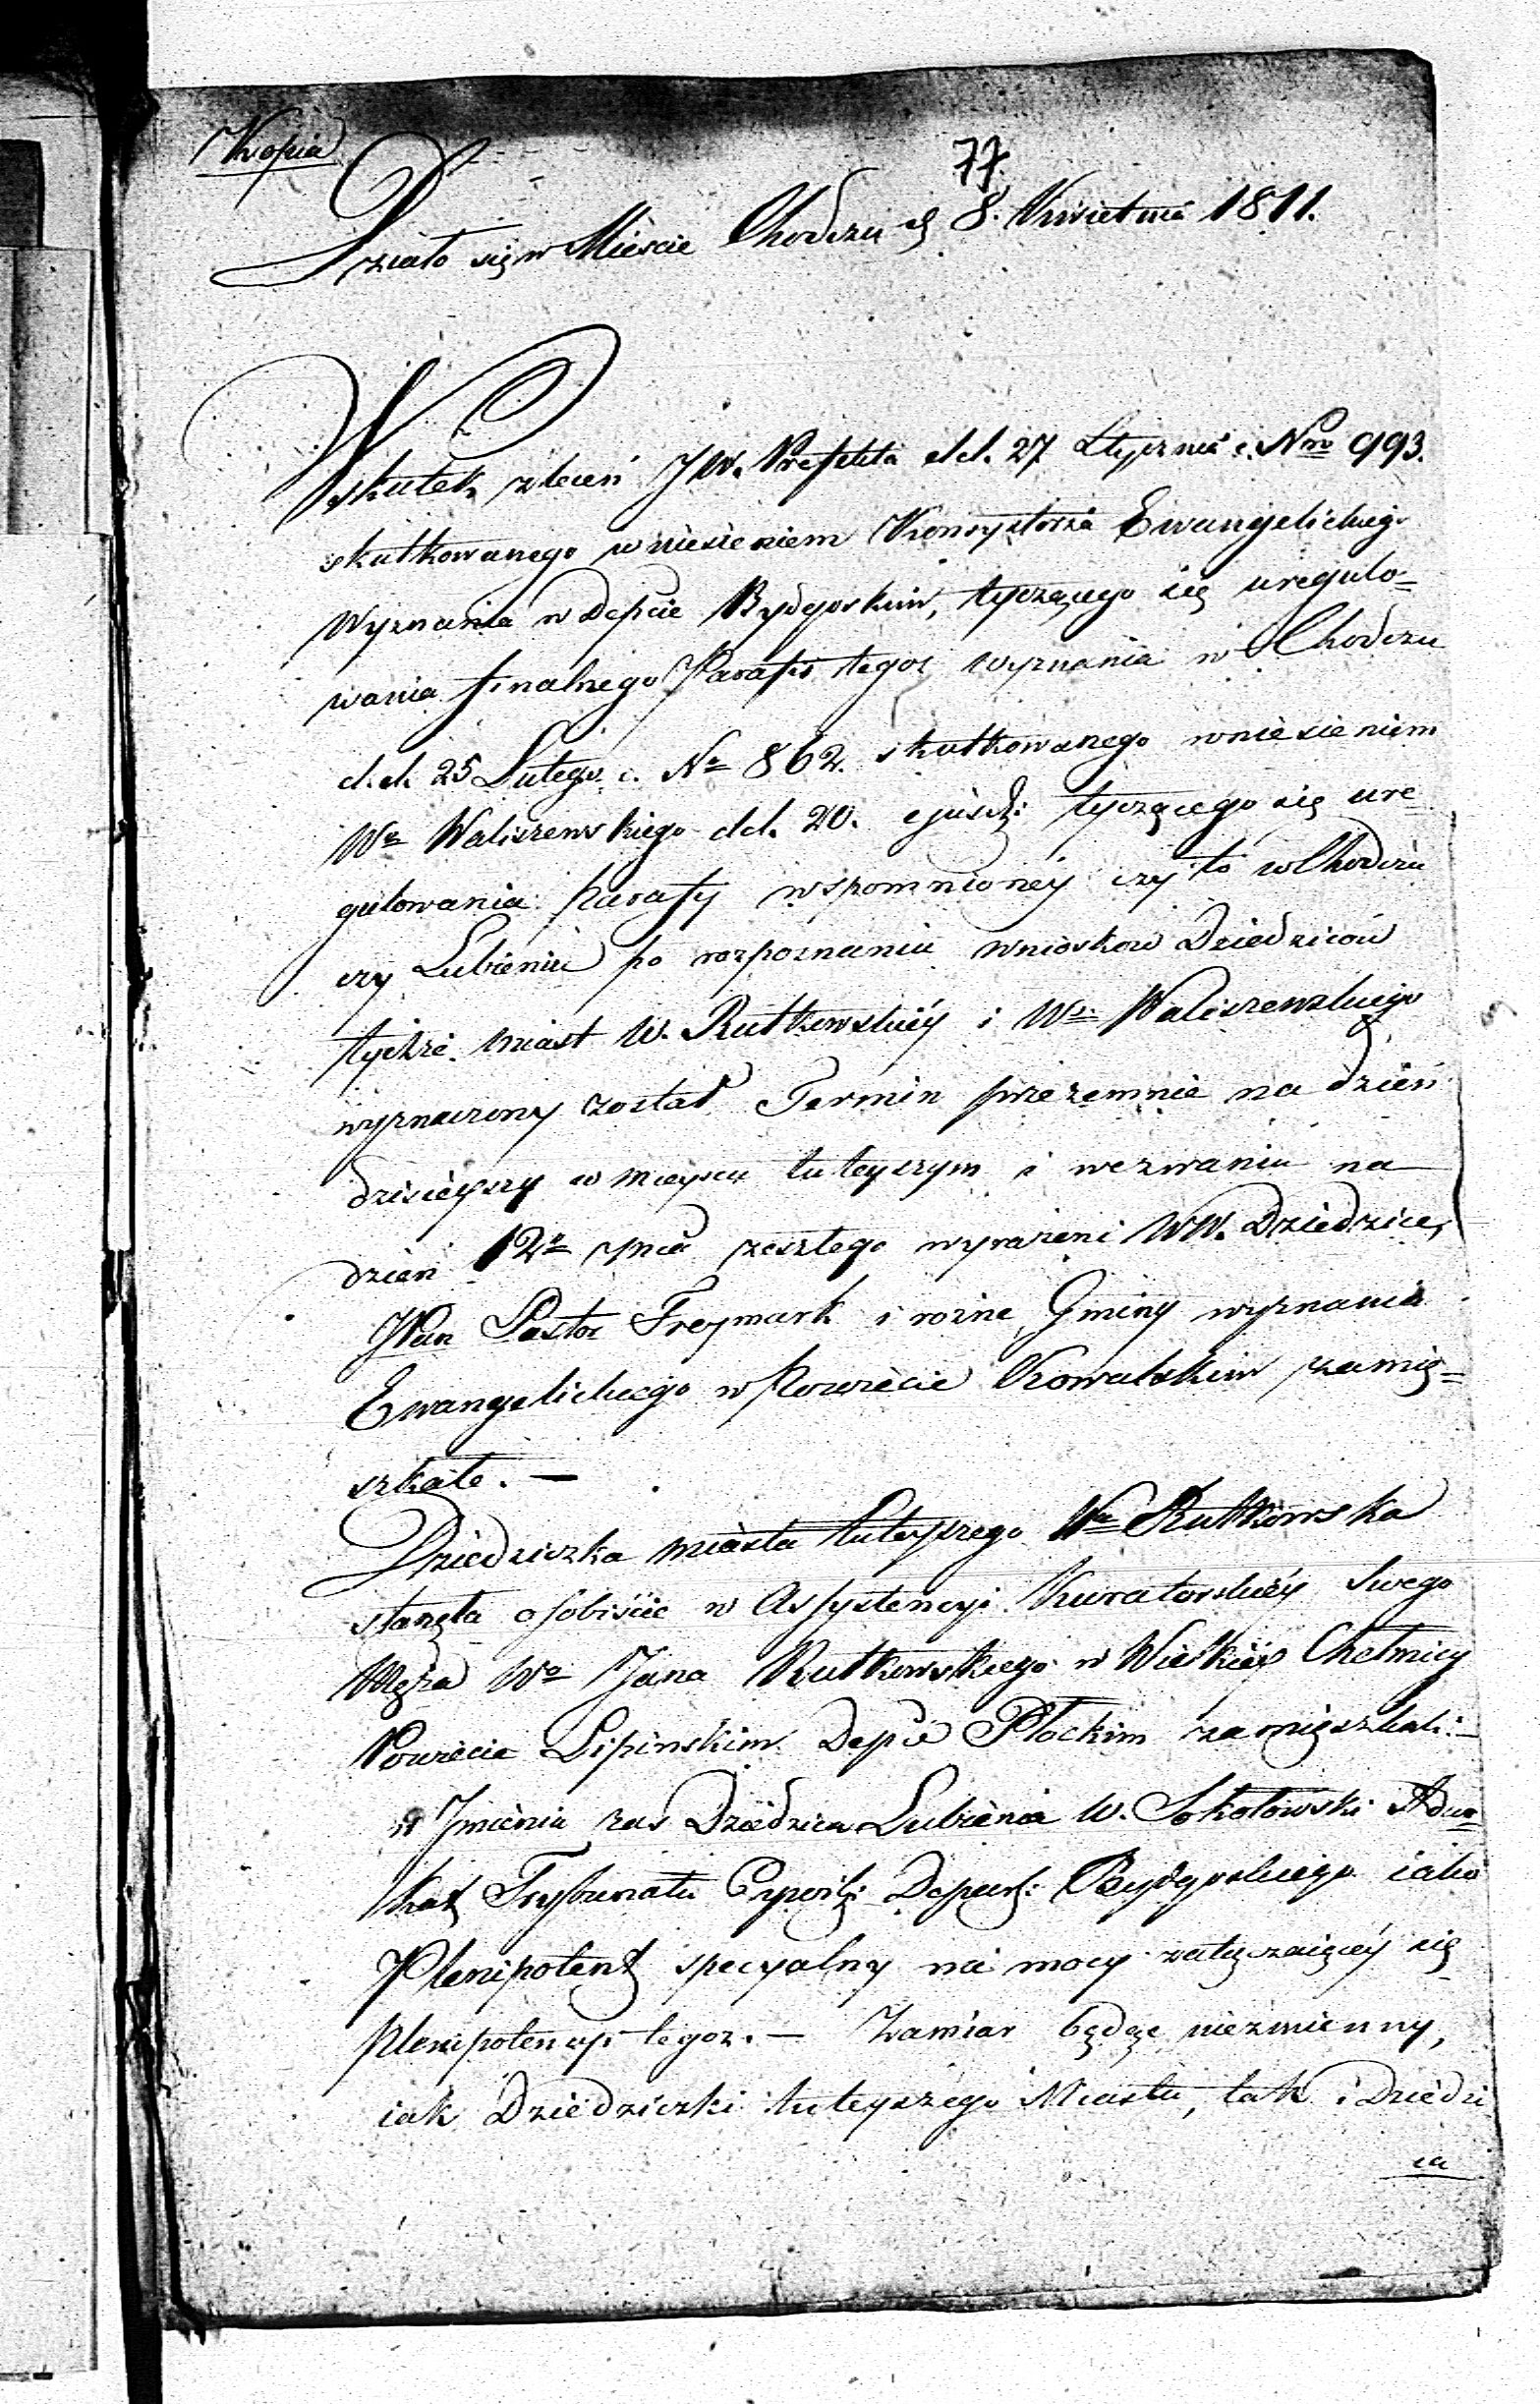 Kopia
77.
Działo się w Mieście Chodczu d. 8. Kwietnia 1811.
Wskutek zleceń JW. Prefekta dd. 27 Stycznia c. Nro 993.
skutkowanego wniesieniem Konsystorza Ewangelickiego
Wyznania w Depcie Bydgoskim, tyczącego się uregulo=
wania finalnego Parafii tegoż wyznania w Chodczu
d.d. 25 Lutego c. No 862. skutkowanego wniesieniem
Wo Waliszewskiego dd. 20. ejusd: tyczącego się ure
gulowania parafy wspomnioney czy to w Chodczu
czy Lubieniu po rozpoznaniu wnioskow Dziedziców
tychże miast W. Rutkowskiéy i Wo Waliszewskiego
wyznaczony został Termin przezemnie na dzień
dzisieyszy w mieyscu tuteyszym i wezwaniu na
dzień 12o zeszłego wyrażeni WW. Dziedzice,
JPan Pastor Freymark i rożne Gminy wyznania
Ewangelickiego w Powiecie Kowalskim zamię=
szkałe. —
Dziedziczka miasta tuteyszego Wa Rutkowska
stanęła osobiście w Assystencyi Kuratorskiéy Swego
Męża Wo Jana Rutkowskiego w Wielkiéy Chełmicy
Powiecie Lipinskim Depcie Płockim zamięszkali:
Jmienia zas Dziedzica Lubienia W. Sokołowski Adwo=
kat Trybunału Cywil: Depart: Bydgoskiego iako
Plenipotent specyalny na mocy załączaiącéy się
Plenipotencyi tegoż. — Zamiar będąc niezmienny,
iak Dziedziczki tuteyszego Miasta, tak i Dziedzi
ca